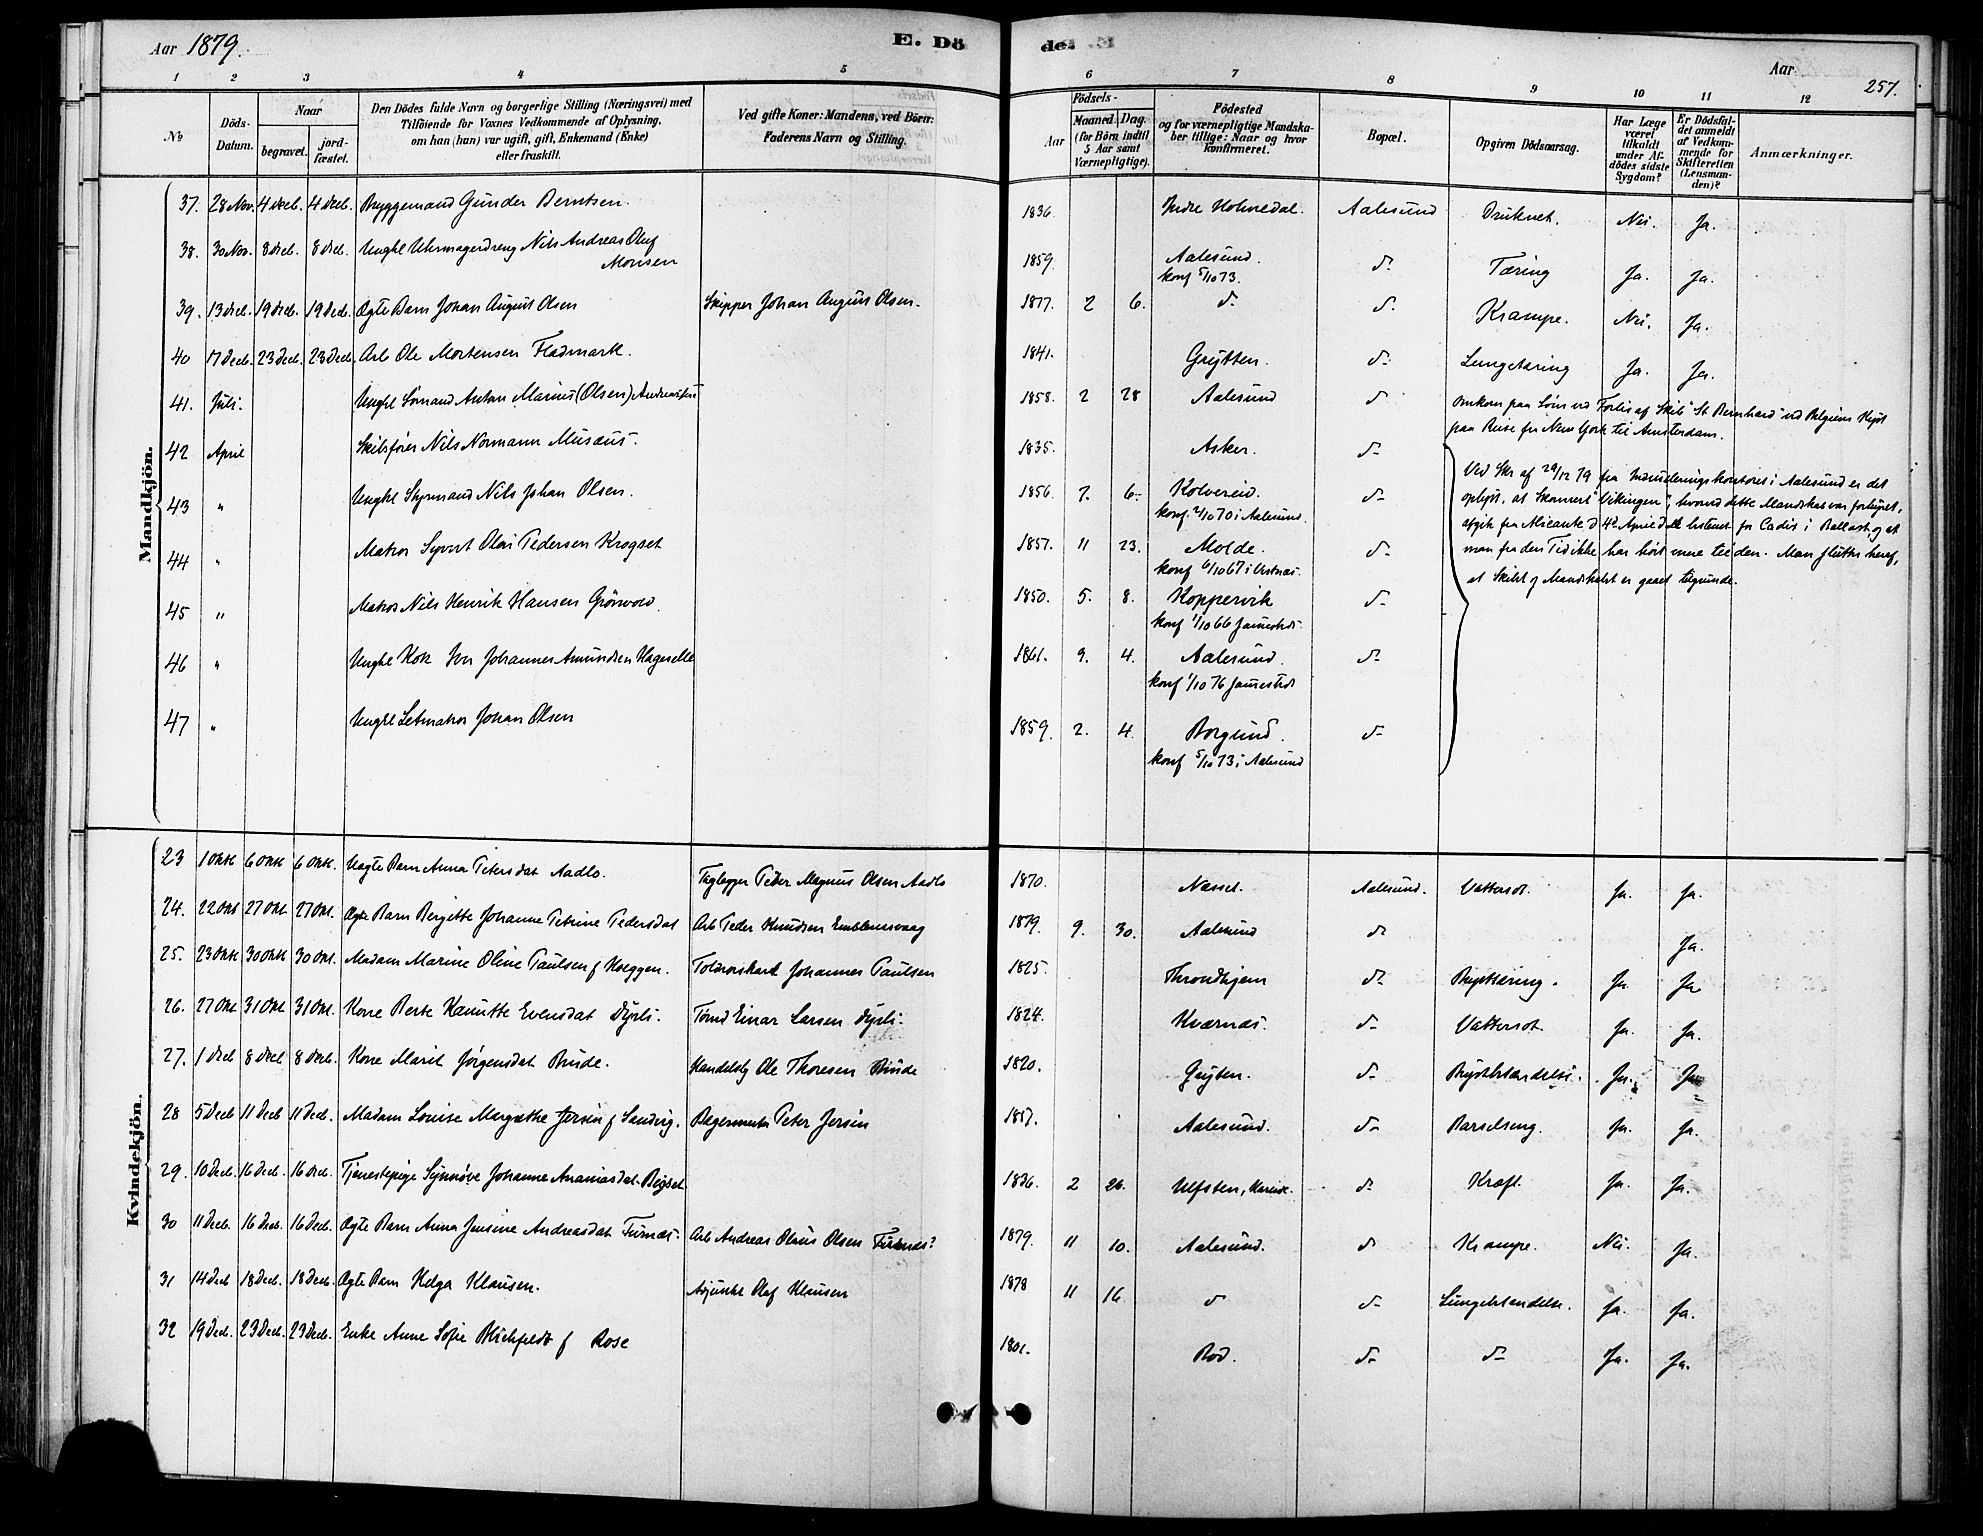 Aar 1879.
E. Dö de:
Aar
257.
1 2 3 4 5 6 7 8 9 10 11 12
№
Döds-Datum.
Naar
begravet.
jord-fæstet.
Den Dödes fulde Navn og borgerlige Stilling (Næringsvei) med
Tilföiende for Voxnes Vedkommende af Oplysning,
om han (hun) var ugift, gift, Enkemand (Enke)
eller fraskilt.
Ved gifte Koner: Mandens, ved Börn:
Faderens Navn og Stilling.
Födsels-
Aar
Maaned. Dag.
(for Börn indtil
5 Aar samt
Værnepligtige).
Födested
og for værnepligtige Mandska-
ber tillige: Naar og hvor
konfirmeret.
Bopæl.
Opgiven Dödsaarsag.
Har Læge
været
tilkaldt
under Af-
dödes sidste
Sygdom?
Er Dödsfal-
det anmeldt
af Vedkom-
mende for
Skifteretten
(Lensman-
den)?
Anmærkninger.
Mandkjön.
37. 28 Nov. 4 Decb. 4 Decb. Bryggemand Gunder Berntsen. 1836. Indre Holmedal. Aalesund Druknet. Nei. Ja.
38. 30 Nov. 8 Decb. 8 Decb. Ungkl Uhrmagerdreng Nils Andreas Oluf
Monsen 1859. Aalesund. d- Tæring Ja. Ja.
konf 5/10 73.
39. 13 Decb. 19 Decb. 19 Decb. Ægte Barn Johan August Olsen Skipper Johan August Olsen. 1877. 2 6. d- d- Krampe. Nei. Ja.
40 17 Decb. 23 Decb. 23 Decb Arb Ole Mortensen Fladmark. 1841. Grytten. d- Lungetæring Ja. Ja.
41. Juli. Ungkl Sømand Anton Marius (Olsen) Andreassen 1858. 2 28 Aalesund d Omkom paa Søen ved Forlis af Skib "St Bernhard" ved Belgiens Kyst
paa Reise fra New York til Amsterdam.
42 April Skibsfører Nils Normann Musæus. 1835. Asker. d-
43 " Ungkl Styrmand Nils Johan Olsen. 1856. 7. 6. Kolvereid. d-
konf. 2/10 70 i Aalesund.
44 " Matros Syvert Olai Pedersen Krogset 1851. 11 23. Molde. d-
konf 6/10 67 i Vestnæs.
45 " Matros Nils Henrik Hansen Grönvold. 1850. 5. 8. Koppervik d-
konf 1/10 66 sammesteds.
46 " Ungkl Kok Iver Johannes Amundsen Hagesæth 1861. 9. 4. Aalesund. d-
konf 1/10 76 sammesteds
47 " Ungkl Letmatros Johan Olsen 1859. 2. 4. Borgund. d-
konf 5/10 73 i Aalesund
Ved Skr af 29/12 79 fra Mønstringskontoret i Aalesund er det
oplyst, at Skonnert "Vikingen", hvorved dette Mandskab var forhyret,
afgik fra Alicante d 4de April d A bestemt for Cadix i Ballast, og at
man fra den Tid ikke har hørt mere til den. Man slutter heraf,
at Skibet og Mandskabet er gaaet tilgrunde.
Kvindekjön.
23 1 Oktb 6 Oktb 6 Oktb. Uægte Barn Anna Petersdat Aadlo. Taglægger Peder Magnus Olsen Aadlo 1870. Næsset. Aalesund. Vattersot. Ja. Ja.
24. 22 Okt 27 Okt 27 Okt. Ægte Barn Bergitte Johanne Petrine Pedersdat Arb Peder Knudsen Emblemsvaag 1879. 9. 30. Aalesund d- Ja.
25. 23 Oktb 30 Oktb 30 Okt. Madam Marine Oline Paulsen f Hoeggen. Toldrorskarl Johannes Paulsen 1825. Throndhjem d- Brysttæring. Ja Ja
26. 27 Okt 31 Okt 31 Okt. Kone Berte Kanutte Evensdat Dyrli. Tømd Einar Larsen Dyrli. 1824. Kværnæs. d- Vattersot. Ja. Ja.
27. 1 Decb 8 Decb 8 Decb. Kone Marit Jörgensdat Brude. Handelsb Ole Thoresen Brude 1820. Grytten. d- Brystbetændelse. Ja. Ja
28 5 Decb 11 Decb 11 Decb. Madam Louise Margrethe Jersin f Sandvig. Bagermester Peter Jersin 1857. Aalesund. d- Barselseng. Ja. Ja.
29. 10 Decb. 16 Decb. 16 Decb. Tjenestepige Synnöve Johanne Ananiasdat Bigset 1836. 2 26. Ulfsten, Hareid. d- Kræft. Ja. Ja.
30 11 Decb. 16 Decb. 16 Decb. Ægte Barn Anna Jensine Andreasdat Furnæs. Arb Andreas Olaus Olsen Furnæs? 1879. 11 10. Aalesund. d Krampe. Nei. Ja.
31 14 Decb 18 Decb. 18 Decb. Ægte Barn Helga Klausen. Adjunkt Olaf Klausen 1878 11 16. d d- Lungebetændelse. Ja. Ja.
32 19 Decb. 23 Decb. 23 Decb. Enke Anne Sofie Blichfeldt f Rose 1801. Rød. d- d- Ja. Ja.